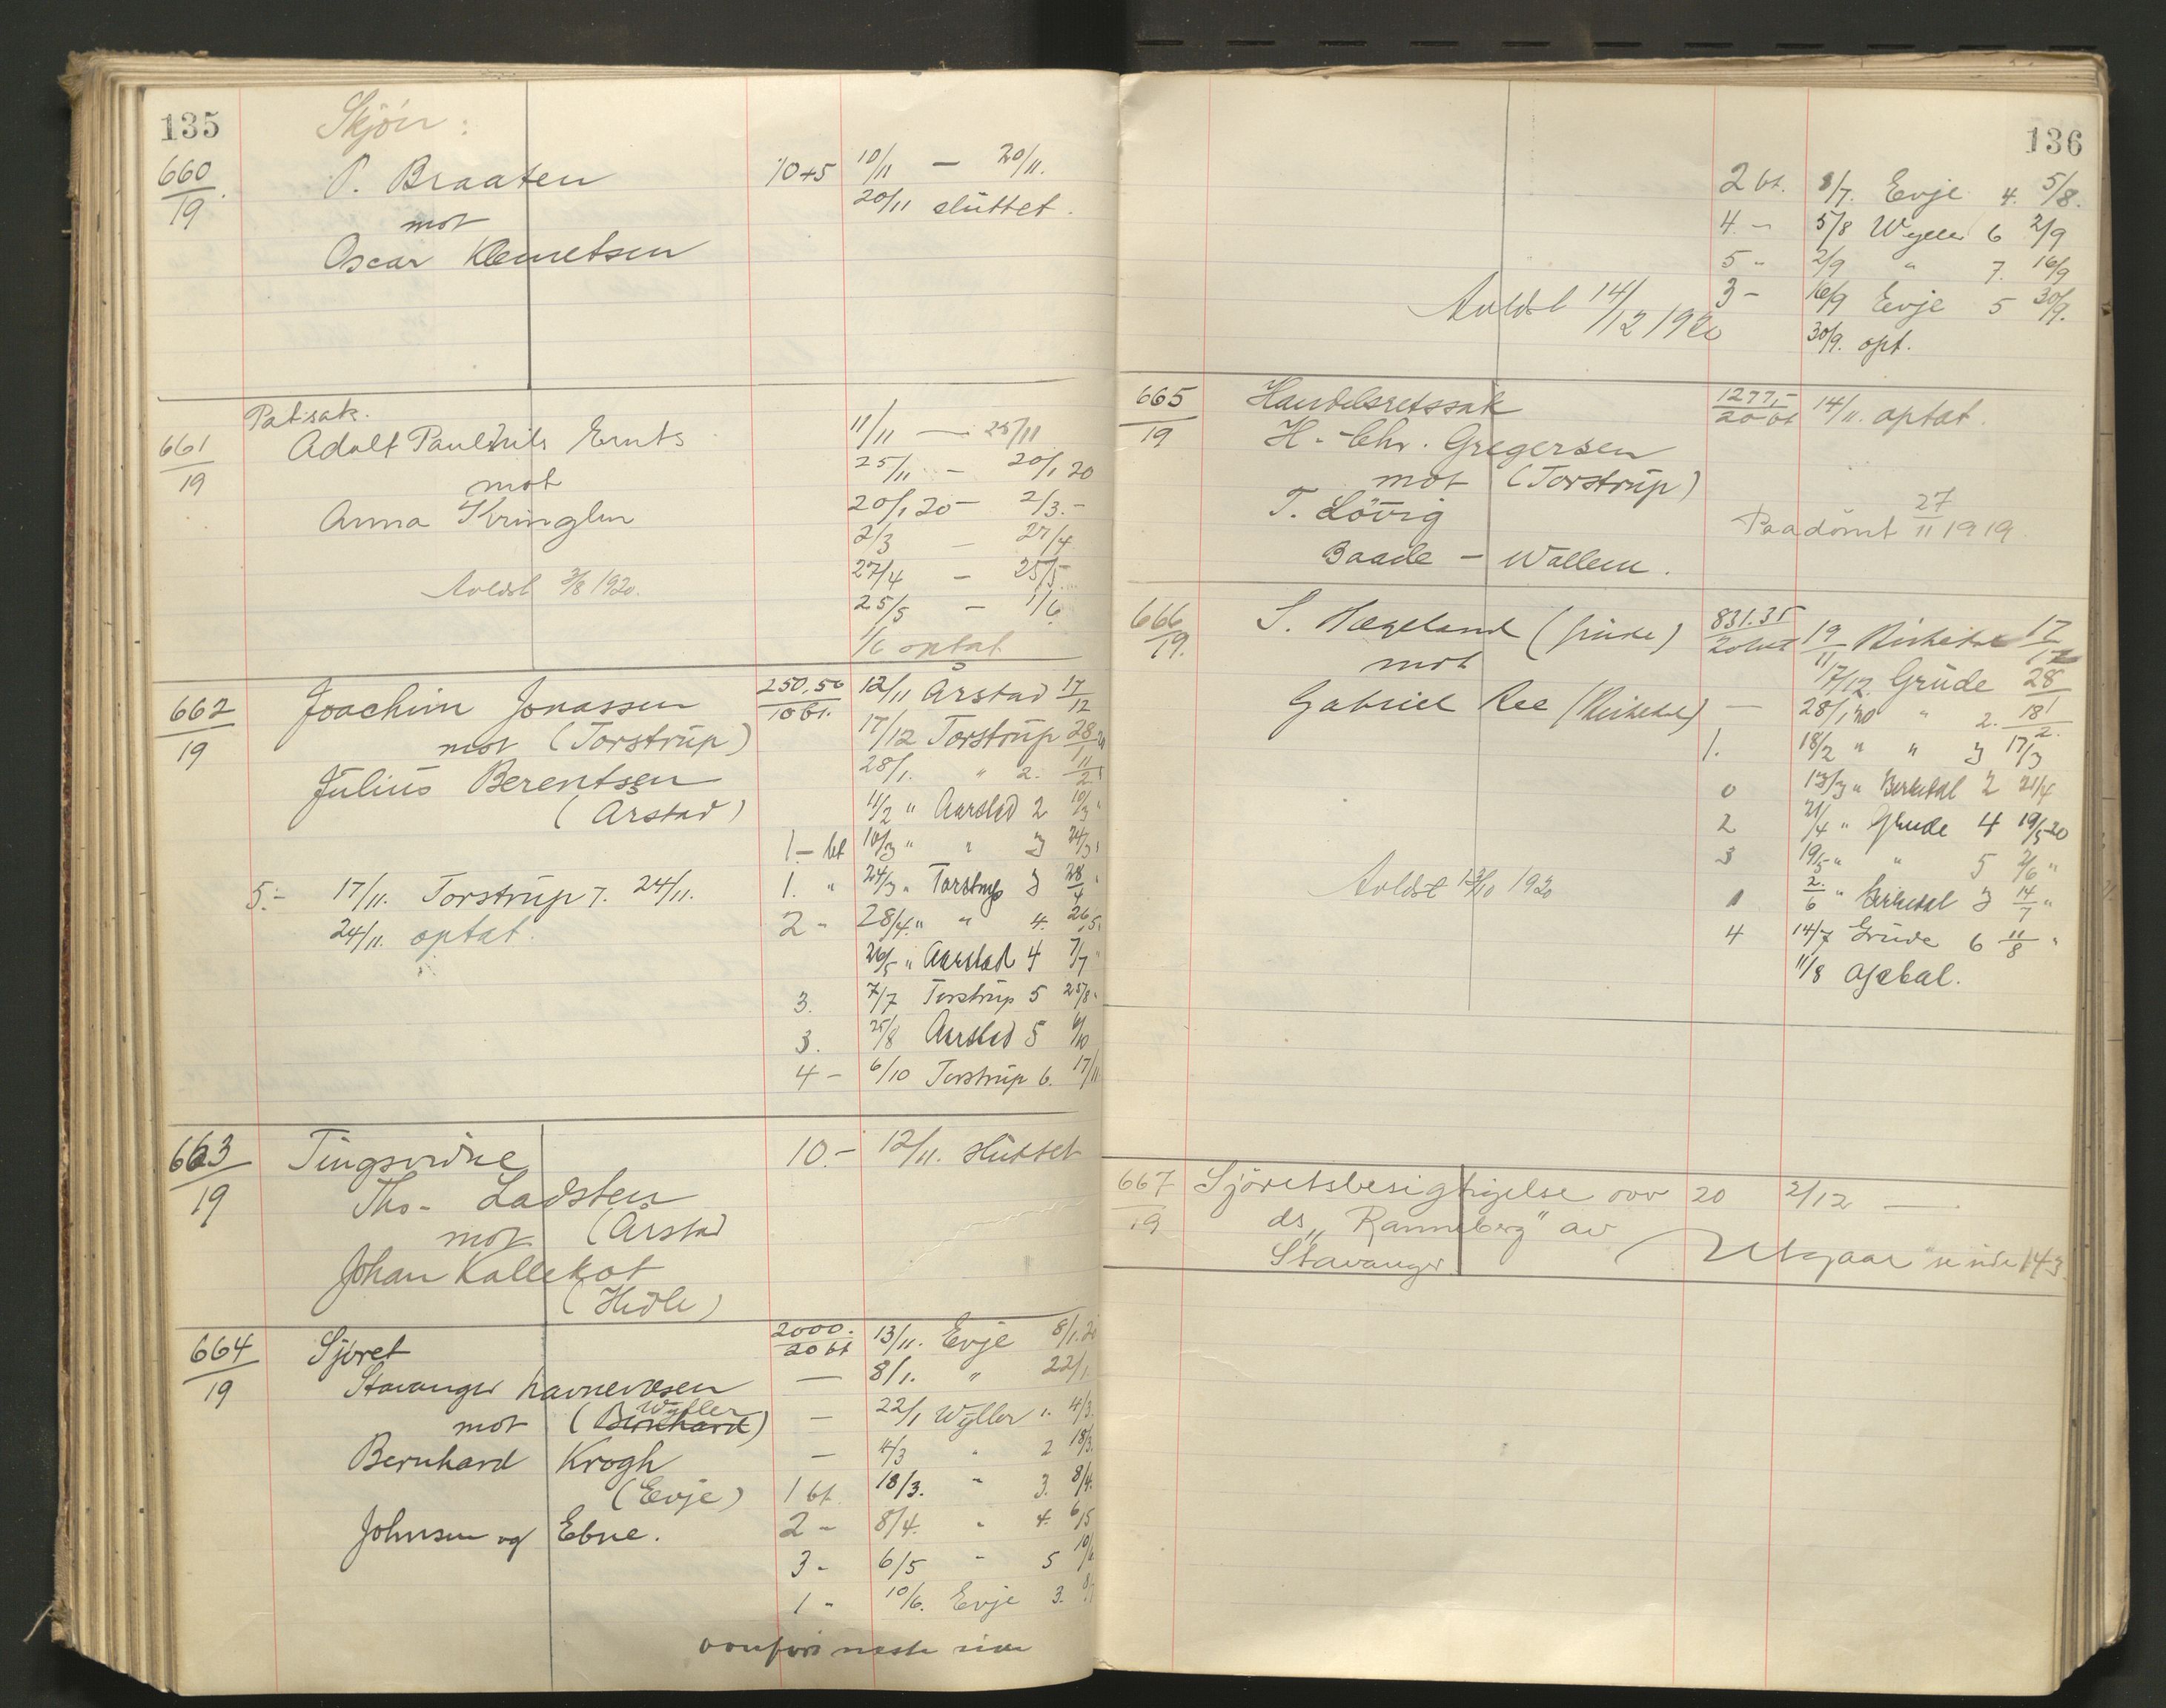 135
Skjön :
660/19 P. Braaten 10+5 10/11 — 20/11.
mot 20/11 sluttet.
Oscar Klemetsen
Patsak.
661/19 Adolt Paul Ernts 11/11 — 25/11
mot 25/11 — 20/1 20
Anna Kringlen 20/1 20 — 2/3. -
2/3 — 27/4
Avldst 3/8 1920. 27/4 — 25/5
25/5 — 1/6
1/6 optat
662/19 Joachim Jonassen 250,50/10 bt. 12/11 Årstad 17/12
mot (Torstrup) 17/12 Torstrup 28/1 20
Julius Berentsen 28/1. " 2. 11/2
(Årstad) 11/2 " Aarstad 2 10/3 "
1 - bt 10/3 " " 3 24/3
5.- 17/11. Torstrup 7. 24/11. 1. " 24/3 " Torstrup 3 28/4 "
24/11. optat. 2 - 28/4. " " 4. 26/5.
26/5 " Aarstad 4 7/7 "
3. 7/7 Torstrup 5 25/8.
3. 25/8 Aarstad 5 6/10
4 - 6/10 Torstrup 6. 17/11
663/19 Tingsvidne 10.- 12/11. sluttet
Ths. Ladsten
mot (Årstad
Johan Kallekot
(Hidle)
664/19 Sjøret 2000./20 bt 13/11. Evje 8/1. 20
Stavanger havnevæsen — 8/1. " 22/1
Wyller
mot (Bernhard) — 22/1 Wyller 1. 4/3.
Bernhard Krogh — 4/3 " 2 18/3.
(Evje) 1 bt. 18/3. " 3. 8/4.
Johnsen og Ebne. 2 - 8/4. " 4. 6/5
3 - 6/5 " 5 10/6
1 - 10/6. Evje 3. 8/7
neste side
136
2 bt. 8/7. Evje 4. 5/8.
4. - 5/8 Wyller 6 2/9
5 - 2/9 " 7. 16/9
Avldst 14/12 1920 3 - 16/9 Evje 5 30/9.
30/9. opt.
665/19 Handelsretssak 1277,-/20 bt 14/11. optat.
H. Chr. Gregersen
mot (Torstrup)
T. Lövig Paadömt 27/11 1919.
Baade — Wallem.
666/19. S. Hægeland (Grude) 831.35/20 bt 19/11 Birkedal 17/12
mot 17/12. Grude 28
Gabriel Ree (Birkedal) — 28/1 20 " 2. 18/2.
1. 18/2 " " 3 17/3
0 17/3 " Birkedal 2 21/4
2 21/4 " Grude 4 19/5 20
3 19/5 " " 5 2/6 "
Avldst 13/10 1920 1 2/6 " Birkedal 3 14/7 "
4 14/7 Grude 6 11/8 "
11/8 optat.
667/19 Sjöretsbesigtigelse ovr 20 2/12 —
ds „Ranneberg" av
Stavanger. Utgaar se side 143.